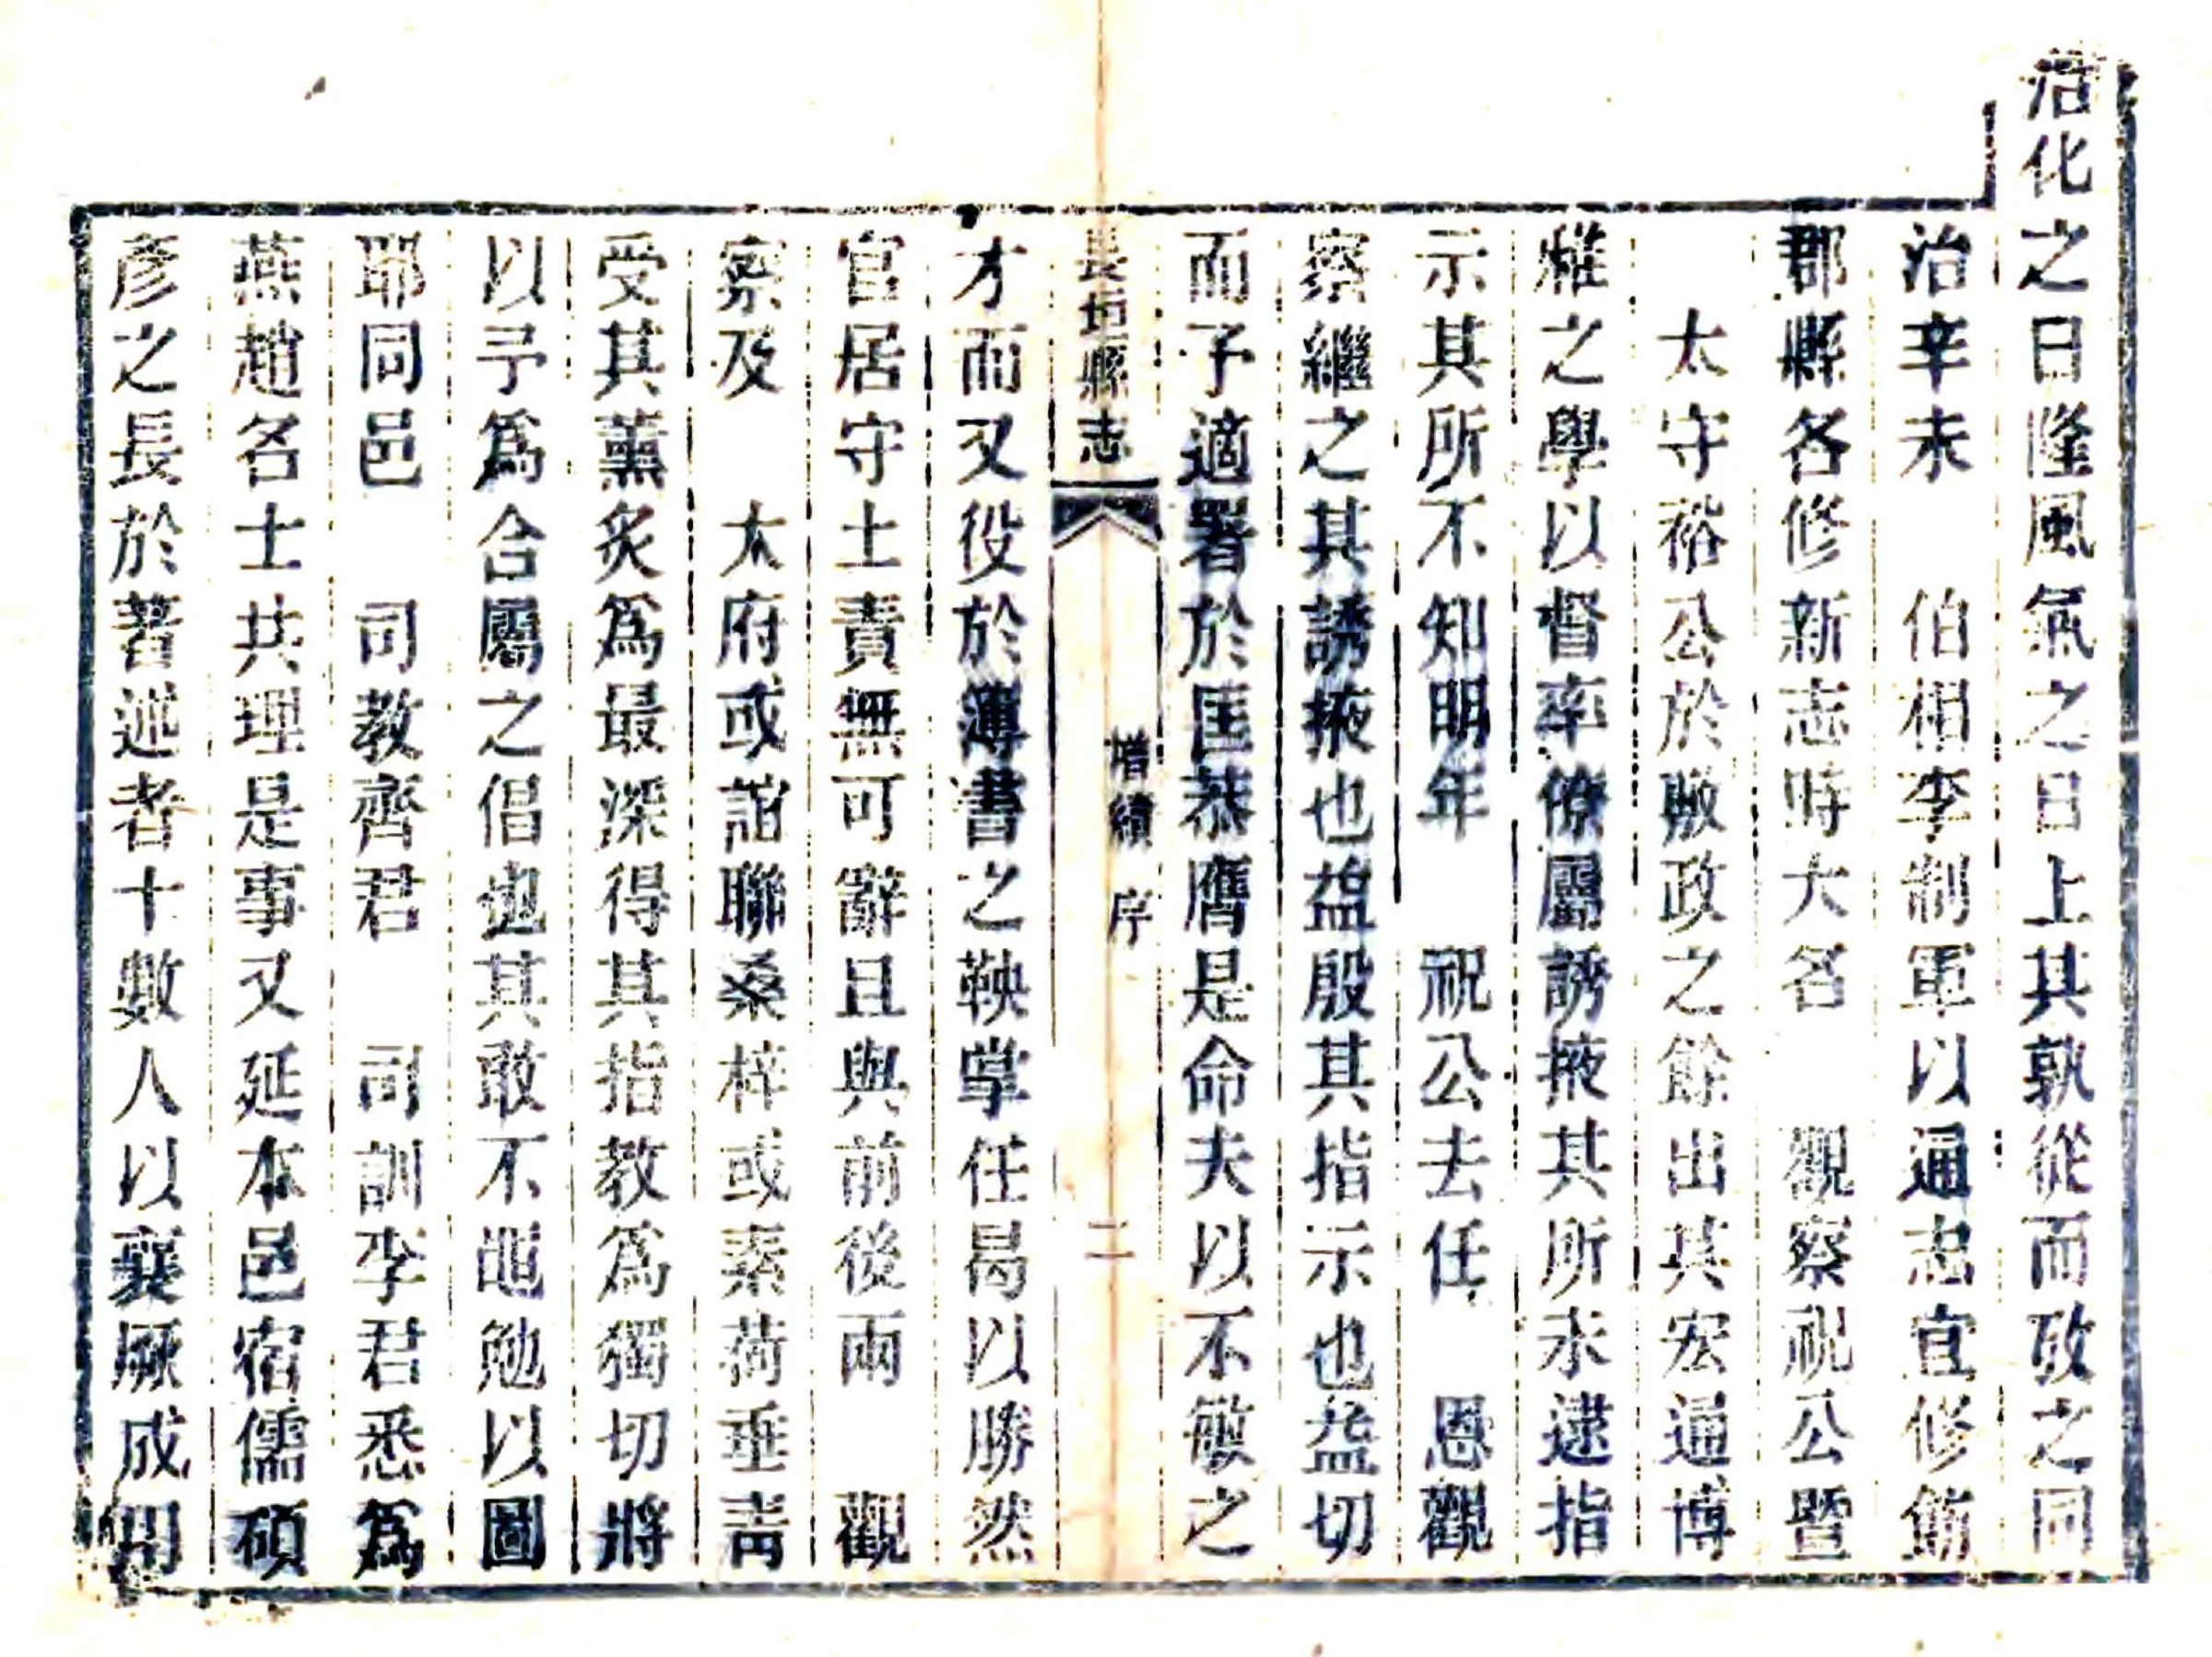 治化之日隆風氣之日上其孰從而致之同
治辛未　伯相李制軍以通志宜修飭
郡縣各修新志時大名　觀察祝公暨
太守裕公於敷政之餘出其宏通博
雅之學以督率僚屬誘掖其所未逮指
示其所不知明年　祝公去任　恩觀
察繼之其誘掖也益殷其指示也益切
而予適署於匡恭膺是命夫以不敏之
長垣縣志　增續　序　二
才而又役於薄書之鞅掌任曷以勝然
官居守土責無可辭且與前後兩　觀
察及　太府或誼聯桑梓或素荷垂青
受其薰炙爲最深得其指教爲獨切將
以予爲合屬之倡也其敢不黽勉以圖
耶同邑　司教齊君　司訓李君悉爲
燕趙名士共理是事又延本邑宿儒碩
彥之長於著述者十數人以襄厥成用